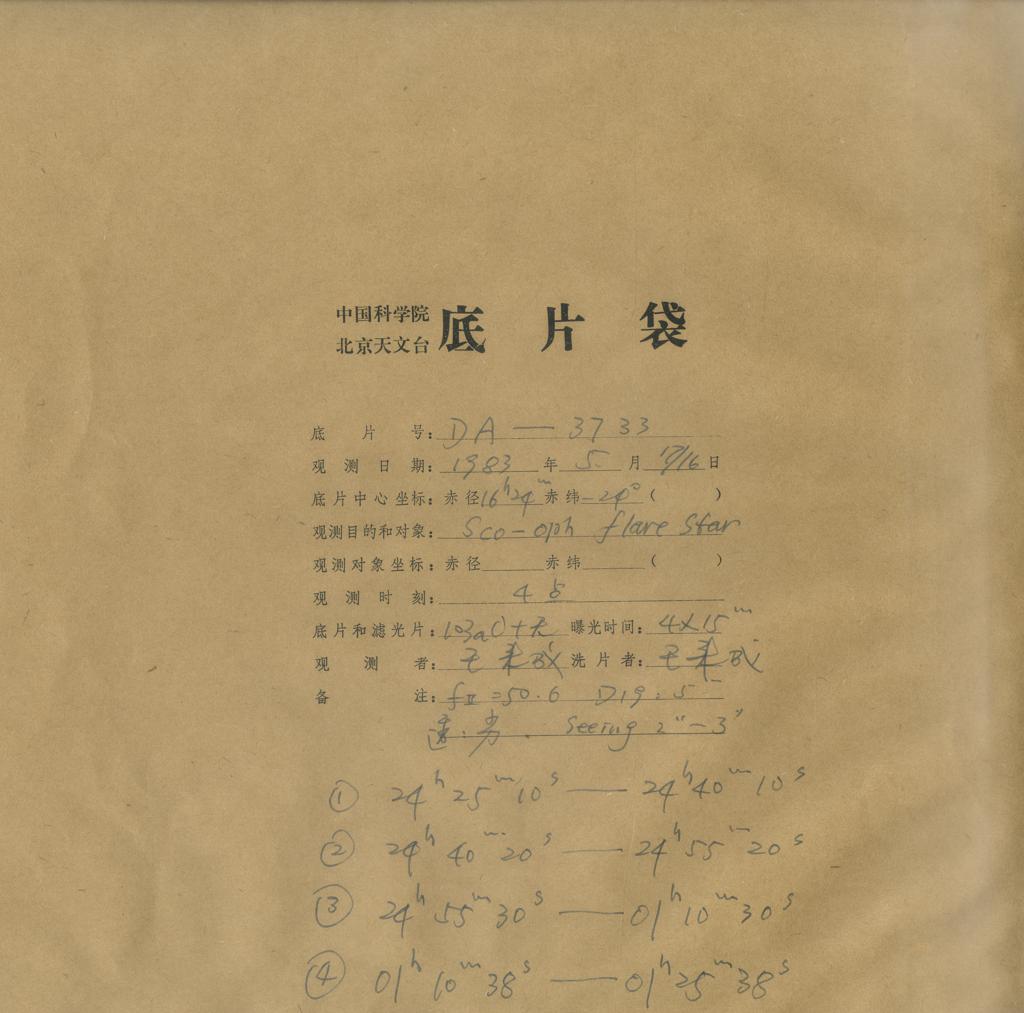 中国科学院
北京天文台
底 片 袋
底 片 号: DA — 3733
观 测 日 期: 1983 年 5 月 17/16 日
底片中心坐标: 赤径 16ʰ24ᵐ 赤纬 -24° ( )
观测目的和对象: Sco-oph flare Star
观测对象坐标: 赤径 赤纬 ( )
观 测 时 刻: 4
底片和滤光片: 103aO+无 曝光时间: 4×15ᵐ
观 测 者: 洗 片 者:
备 注: fⅡ=50.6 D19.5
Seeing 2"-3"
① 24ʰ25ᵐ10ˢ — 24ʰ40ᵐ10ˢ
② 24ʰ40ᵐ20ˢ — 24ʰ55ᵐ20ˢ
③ 24ʰ55ᵐ30ˢ — 01ʰ10ᵐ30ˢ
④ 01ʰ10ᵐ38ˢ — 01ʰ25ᵐ38ˢ